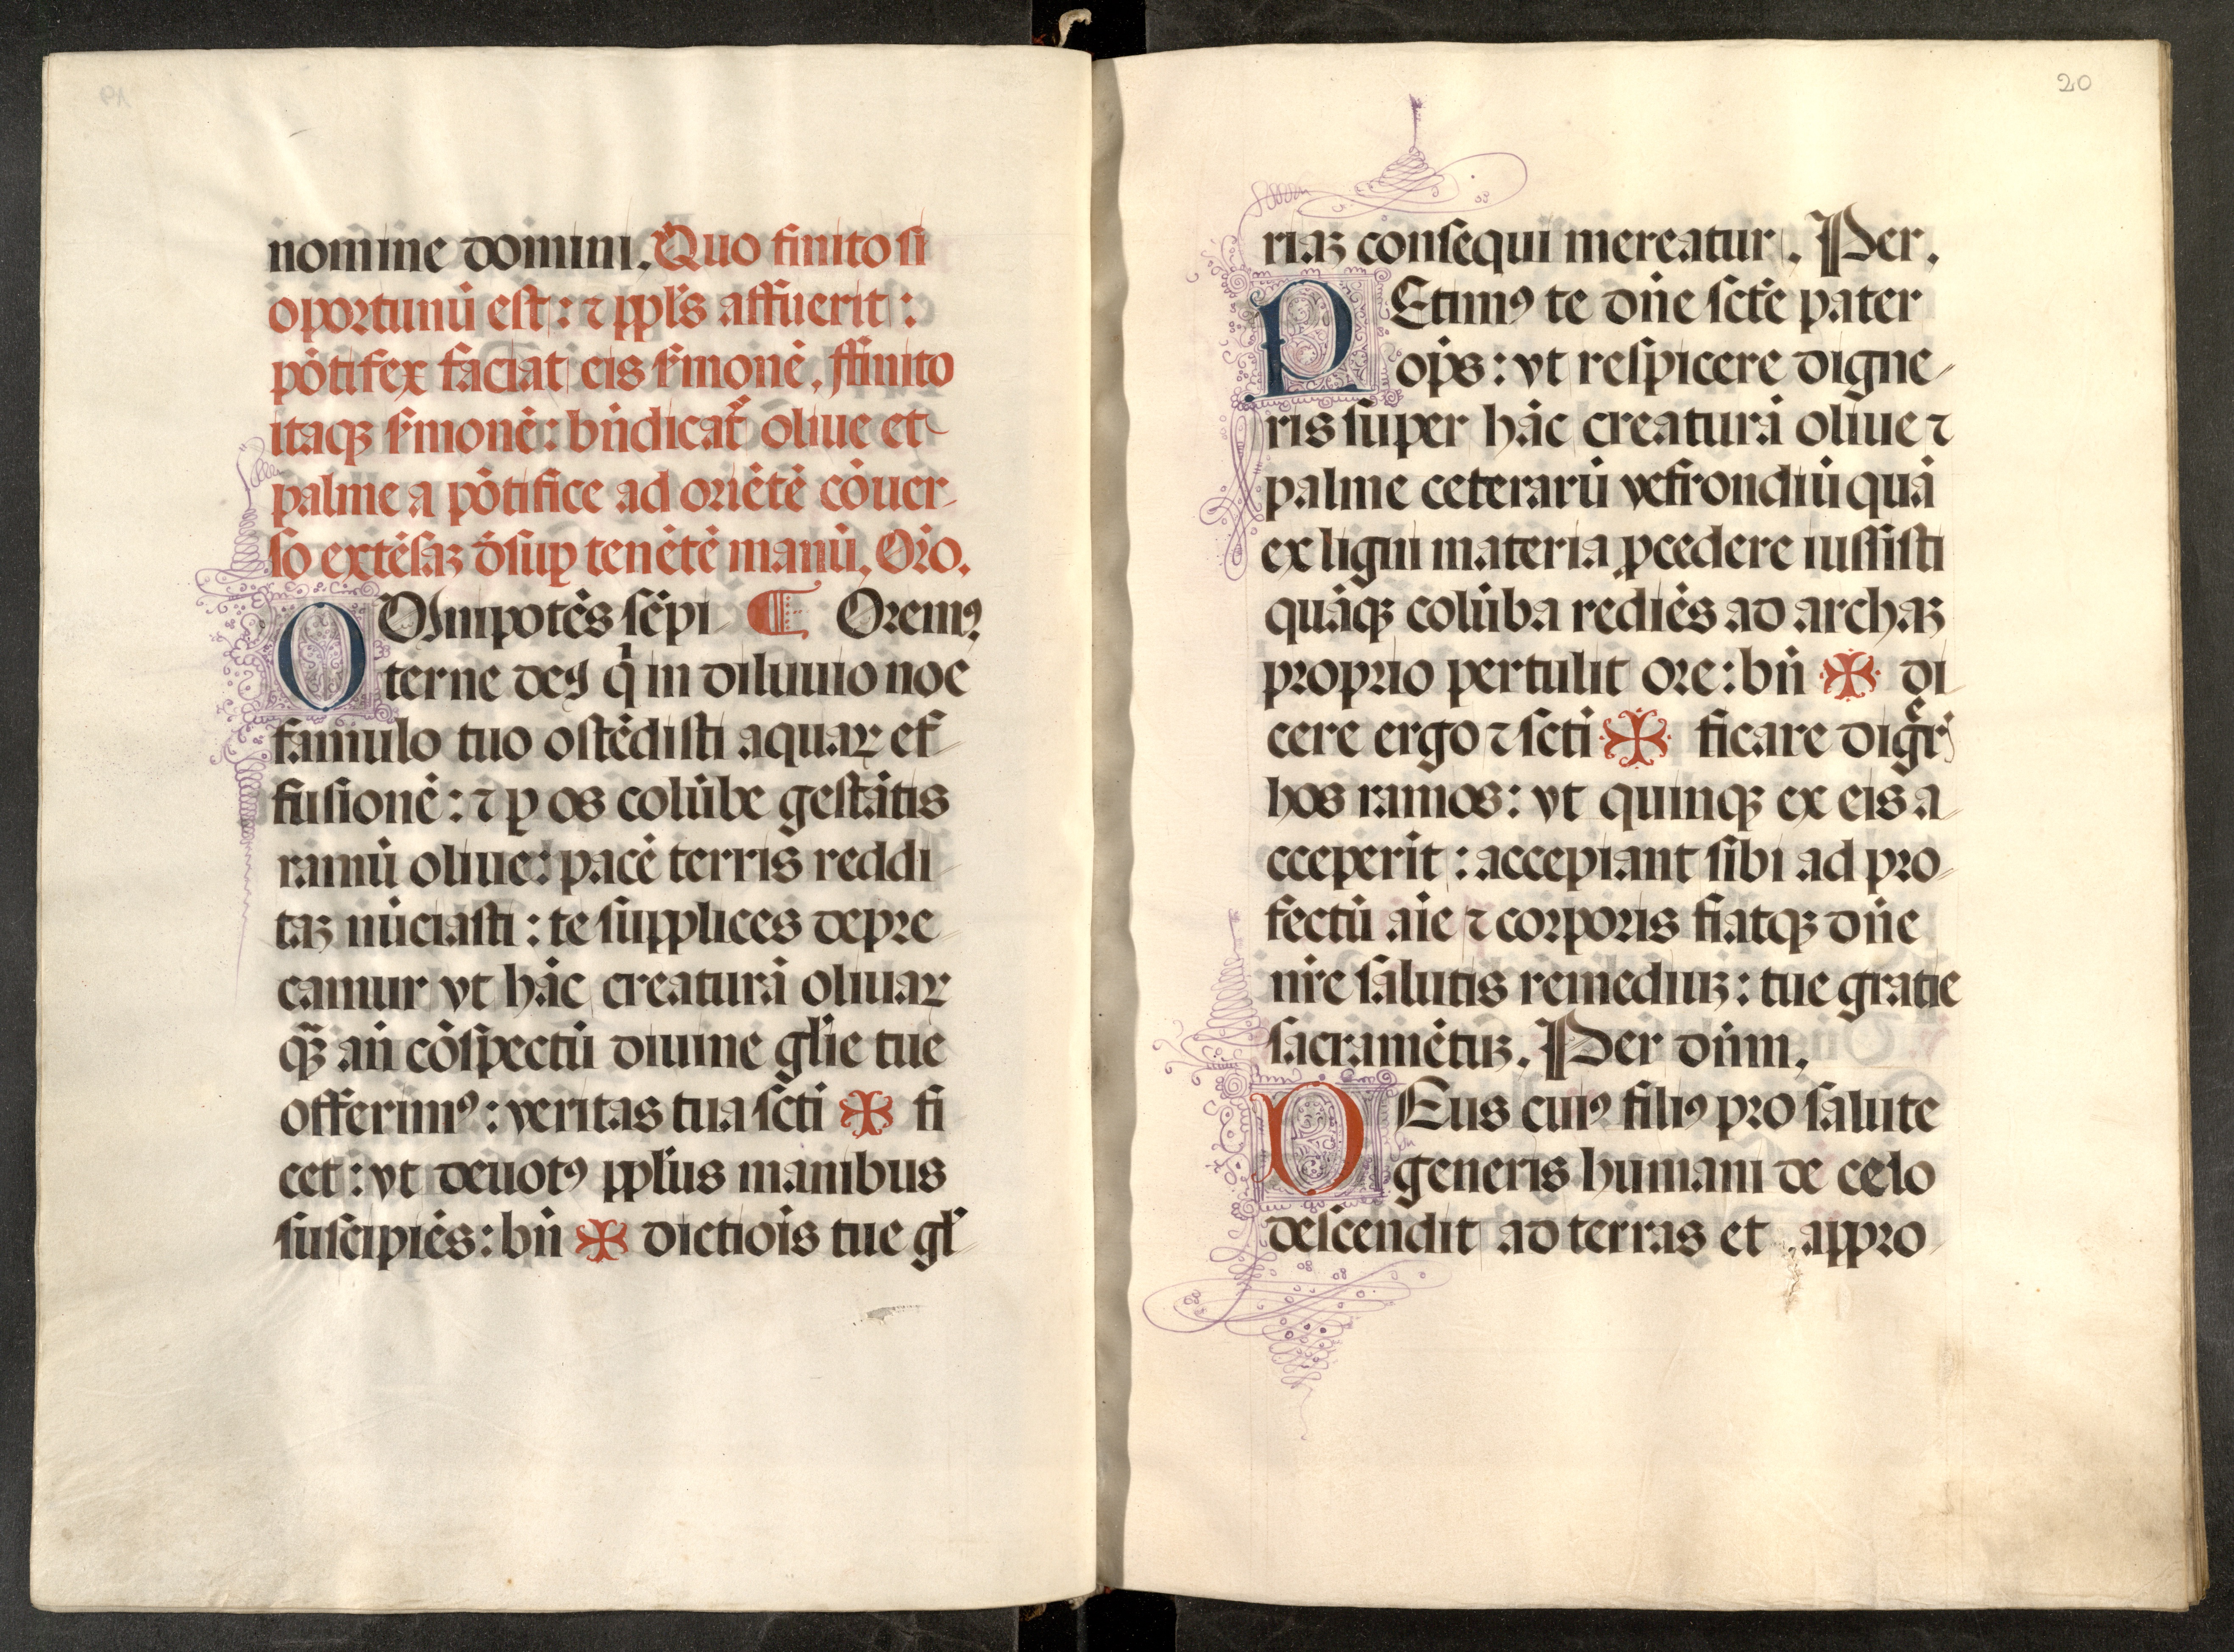 nomine domini. Quo finito si
oportunū est : ⁊ ppl's affuerit :
pōtifex faciat eis ẜmonē. ffinito
itaqꝫ ẜmonē : bn̄dicat᷑ oliue et
palme a pōtifice ad oriētē cōuer-
so extēsaꝫ d̄suꝑ tenētē manū. Or̄o.
OMnipotēs sēpi ¶ Oremꝰ
terne deꝰ q̇ in diluuio noe
famulo tuo ostēdisti aquaꝝ ef-
fusionē : ⁊ ꝑ os colūbe gestātis
ramū oliue : pacē terris reddi-
taꝫ nūciasti : te supplices depre-
camur vt hāc creaturā oliuaꝝ
q̄ꝫ an̄ cōspectū diuine gl'ie tue
offerimꝰ : veritas tua scti ✠ fi
cet : vt deuotꝰ ppl'us manibus
suscipiēs : bn̄ ✠ dictiōis tue gl'-
20
riaꝫ consequi mereatur. Per.
PEtimꝰ te dn̄e sctē pater
op̄s : vt respicere digne-
ris super hāc creaturā oliue ⁊
palme ceterarū ve frondiū quā
ex ligni materia ꝓcedere iussisti
quāqꝫ colūba rediēs ad archaꝫ
proprio pertulit ore : bn̄ ✠ di-
cere ergo ⁊ scti ✠ ficare dig̃ris
hos ramos : vt quinqꝫ ex eis a-
cceperit : accepiant sibi ad pro-
fectū aīe ⁊ corporis fiatqꝫ dn̄e
nr̄e salutis remediuꝫ : tue gratie
sacramētuꝫ. Per dn̄m.
DEus cuiꝰ filiꝰ pro salute
generis humani de celo
descendit ad terras et appro-